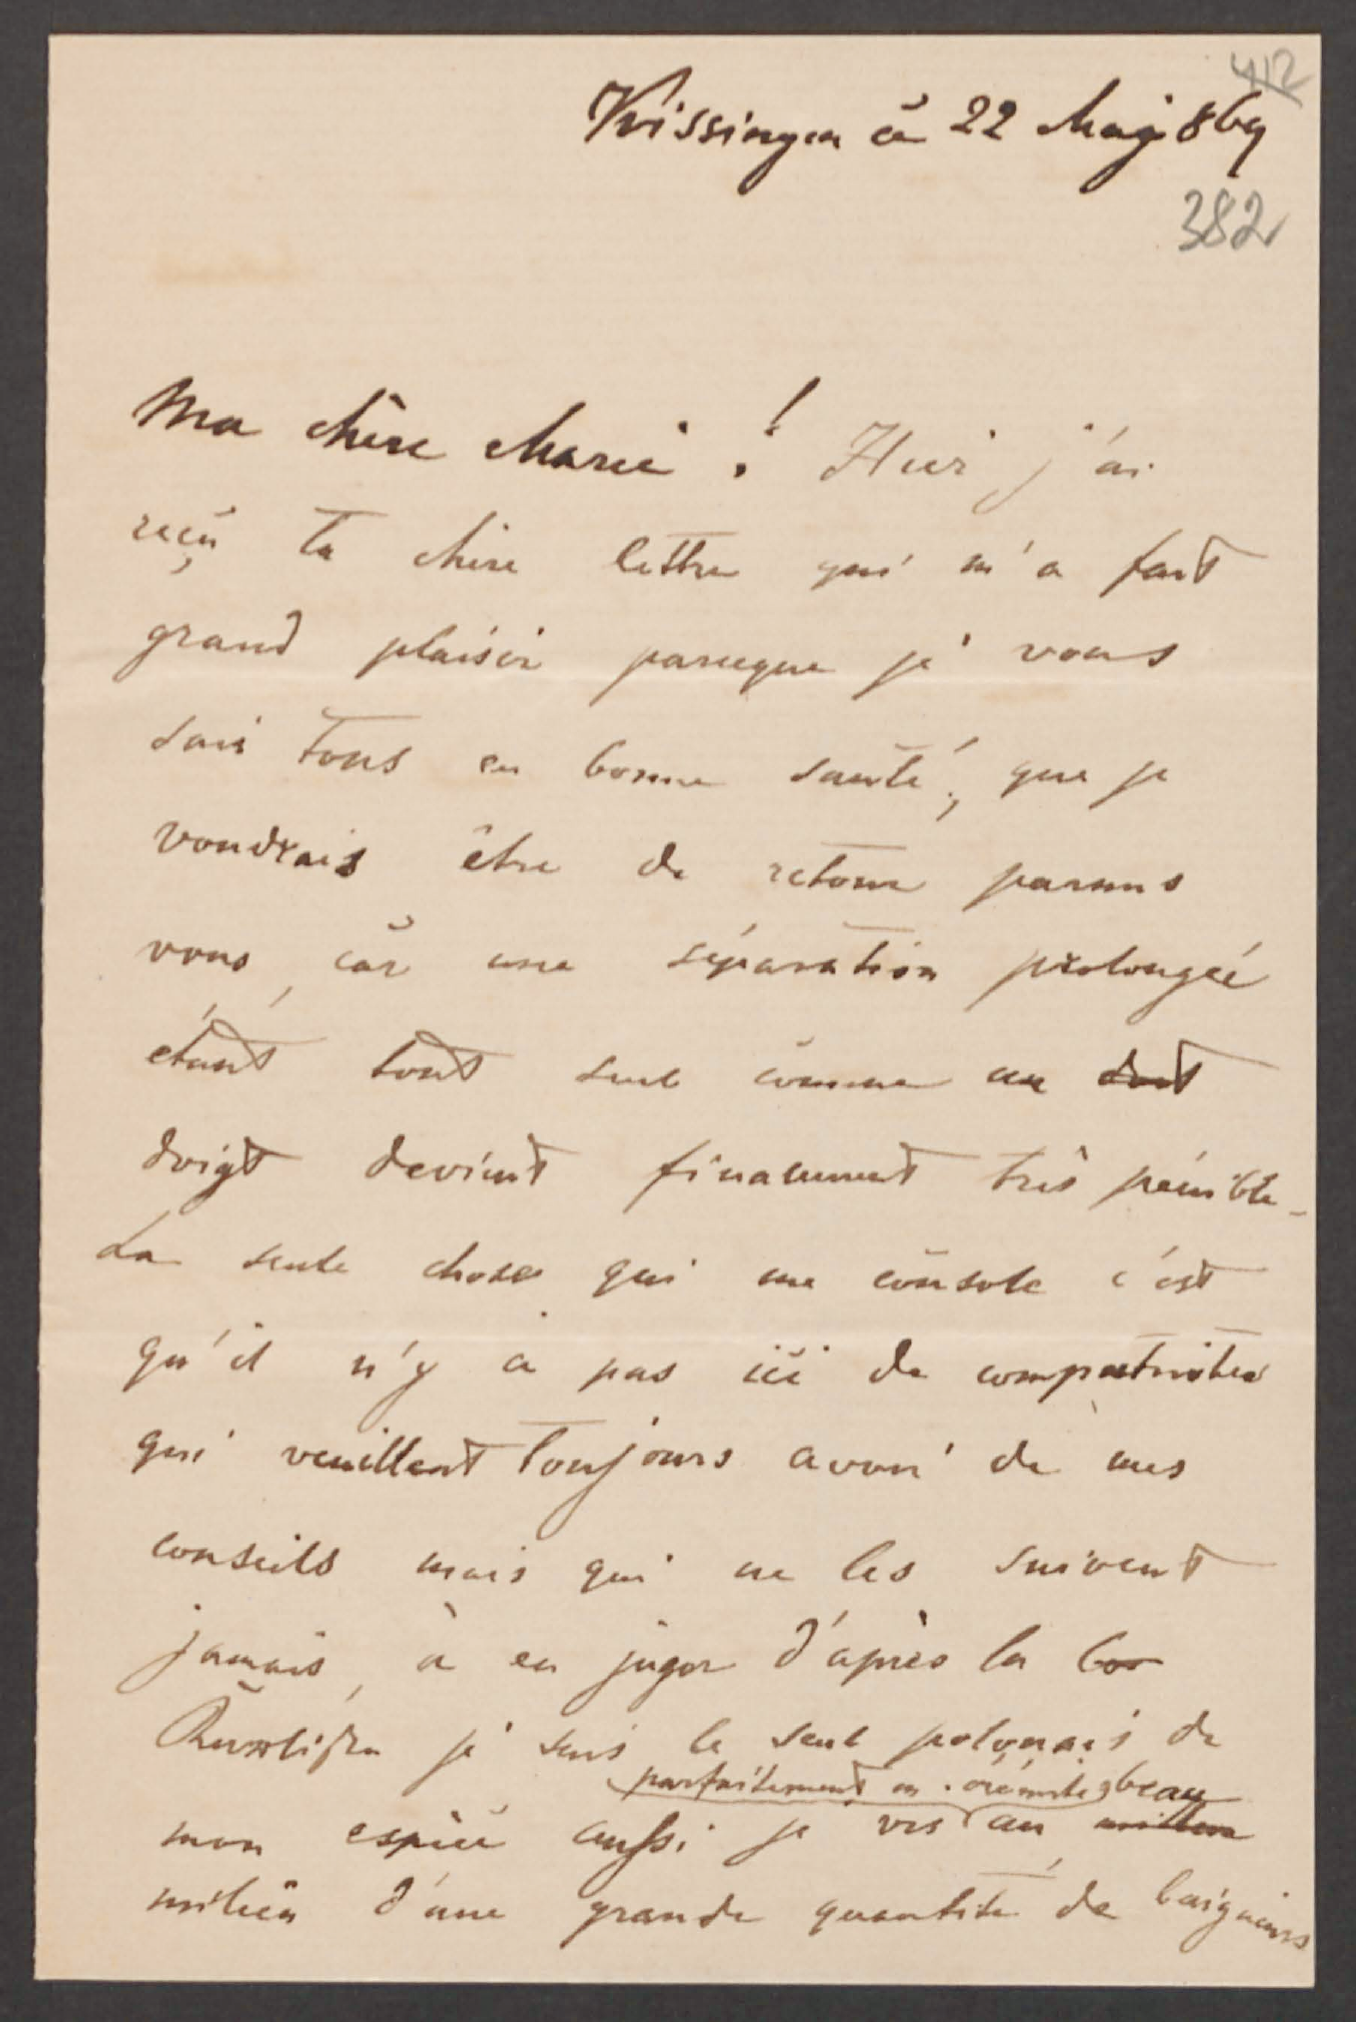 412
Kissingen à 22 Maj 869
382
Ma chère Marie ! Hier j'ai
reçu ta chère lettre qui m'a fait
grand plaisir parceque je vous
sais tous en bonne santé, que je
voudrais être de retour parmis
vous, car une séparation prolongée
étant tout seul comme un doit
doigt devient finalement très pénible.
La seule chose qui me console c'est
qu'il n'y a pas ici de compatriotes
qui veuillent toujours avoir de mes
conseils mais qui ne les suivent
jamais, à en juger d'après la
je suis le seul polonais de
parfaitement en érémite, beau
mon espèce aussi je vis au milieu
milieu d'une grande quantité de baigneurs